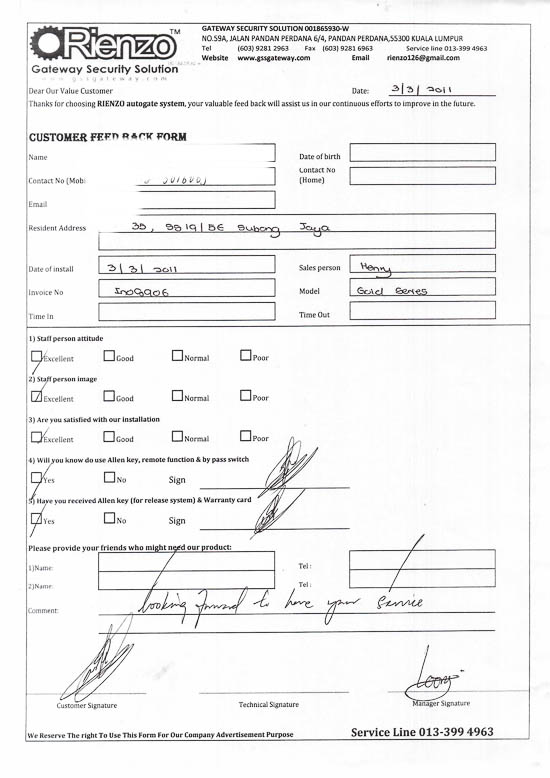 Rienzo TM
Gateway Security Solution
www.gssgateway.com
GATEWAY SECURITY SOLUTION 001865930-W
NO.59A, JALAN PANDAN PERDANA 6/4, PANDAN PERDANA,55300 KUALA LUMPUR
Tel (603) 9281 2963 Fax (603) 9281 6963 Service line 013-399 4963
Website www.gssgateway.com Email rienzo126@gmail.com
Dear Our Value Customer Date: 3/3/2011
Thanks for choosing RIENZO autogate system, your valuable feed back will assist us in our continuous efforts to improve in the future.
CUSTOMER FEED BACK FORM
Name Date of birth
Contact No (Mobi Contact No (Home)
Email
Resident Address 35, SS19/5E Subang Jaya
Date of install 3/3/2011 Sales person Henry
Invoice No Model Gold Series
Time In Time Out
1) Staff person attitude
Excellent Good Normal Poor
2) Staff person image
Excellent Good Normal Poor
3) Are you satisfied with our installation
Excellent Good Normal Poor
4) Will you know do use Allen key, remote function & by pass switch
Yes No Sign
5) Have you received Allen key (for release system) & Warranty card
Yes No Sign
Please provide your friends who might need our product:
1)Name: Tel :
2)Name: Tel :
Comment: looking forward to have your service
Customer Signature Technical Signature Manager Signature
We Reserve The right To Use This Form For Our Company Advertisement Purpose Service Line 013-399 4963